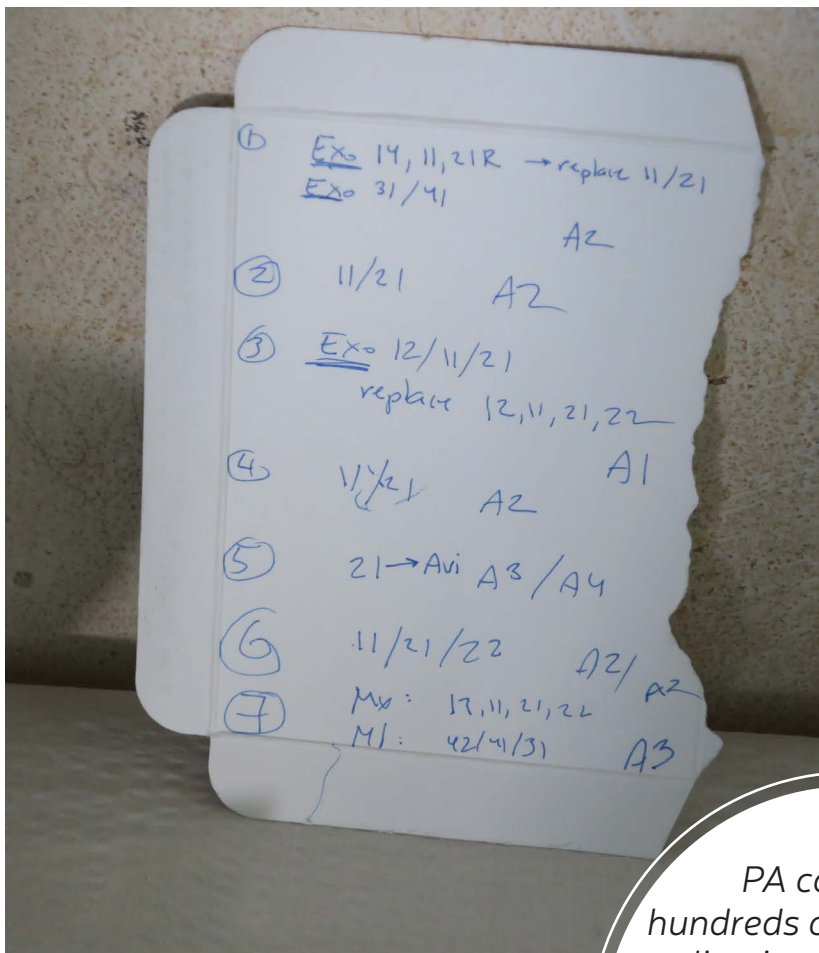 ① Exo 14, 11, 21R → replace 11/21
Exo 31/41
A2
② 11/21 A2
③ Exo 12/11/21
replace 12, 11, 21, 22
A1
④ 11/21 A2
⑤ 21 → Avi A3/A4
⑥ 11/21/22 A2/A2
⑦ Mx: 12, 11, 21, 22
Md: 42/41/31 A3
PA co
hundreds o